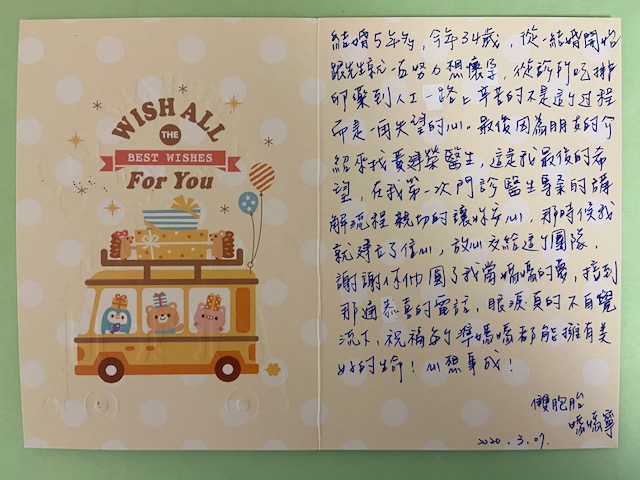 WISH ALL
THE
BEST WISHES
For You
結婚5年多，今年34歲，從一結婚開始
跟先生就一直努力想懷孕，從診所吃排
卵藥到人工一路上辛苦的不是這個過程
而是一再失望的心。最後因為朋友的介
紹來找黃建榮醫生，這是我最後的希
望，在我第一次門診醫生專業的講
解流程親切的讓妳安心，那時候我
就建立了信心，放心交給這個團隊，
謝謝你們圓了我當媽媽的夢，接到
那通恭喜的電話，眼淚真的不自覺
流下，祝福每個準媽媽都能擁有美
好的生命！心想事成！
雙胞胎
媽媽寧
2020.3.07.